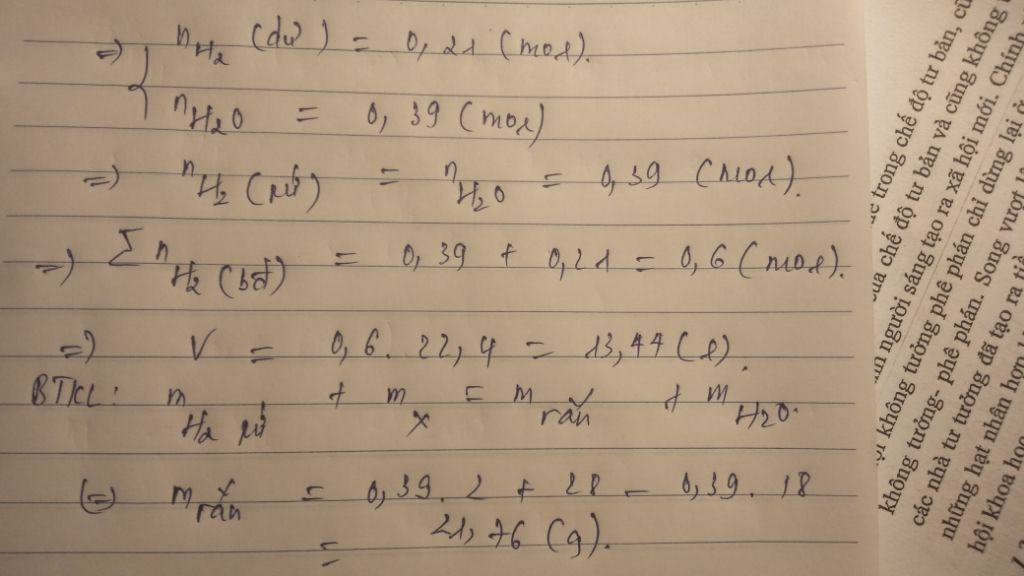 => { n H₂ (dư) = 0,21 (mol).
n H₂O = 0,39 (mol)
=) n H₂ (pứ) = n H₂O = 0,39 (mol).
=) Σ n H₂ (bđ) = 0,39 + 0,21 = 0,6 (mol).
=) V = 0,6. 22,4 = 13,44 (l).
BTKL: m H₂ pứ + m X = m rắn + m H₂O.
(=) m rắn = 0,39. 2 + 28 - 0,39. 18
= 21,76 (g).
trong chế độ tư bản,
chế độ tư bản và cũng không
người sáng tạo ra xã hội mới. Chính
không tưởng phê phán chỉ dừng lại ở
không tưởng- phê phán. Song vượt
các nhà tư tưởng đã tạo ra
những hạt nhân hợp
hội khoa học